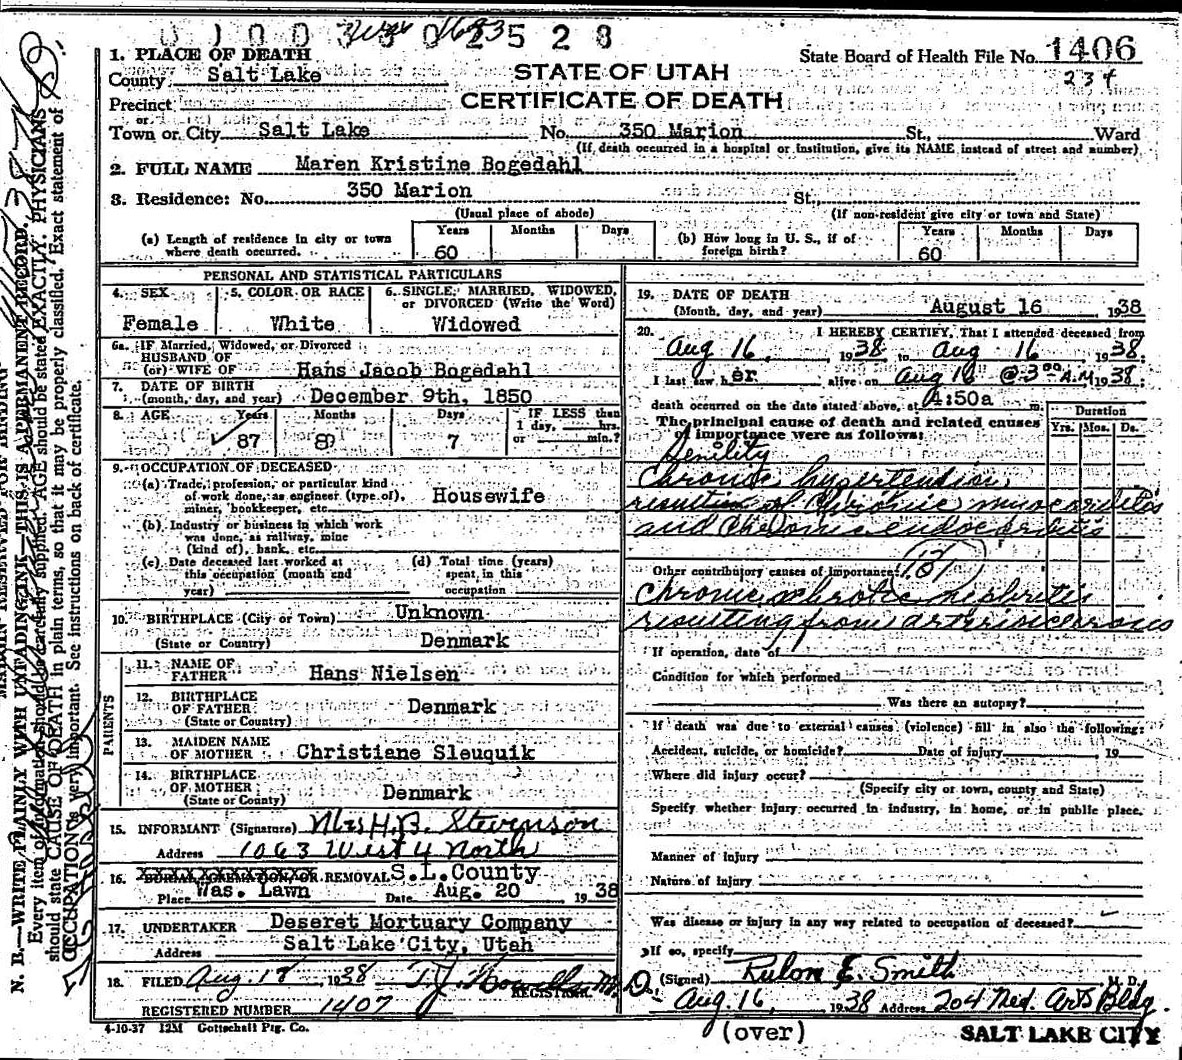 1. PLACE OF DEATH
County Salt Lake
Precinct
or
Town or City Salt Lake No. 350 Marion St., Ward
(If death occurred in a hospital or institution, give its NAME instead of street and number)
State Board of Health File No. 1406
234
STATE OF UTAH
CERTIFICATE OF DEATH
2. FULL NAME Maren Kristine Bogedahl
3. Residence: No. 350 Marion St.,
(Usual place of abode) (If non-resident give city or town and State)
(a) Length of residence in city or town where death occurred. Years 60 Months Days
(b) How long in U. S., if of foreign birth? Years 60 Months Days
PERSONAL AND STATISTICAL PARTICULARS
4. SEX Female
5. COLOR OR RACE White
6. SINGLE, MARRIED, WIDOWED, or DIVORCED (Write the Word) Widowed
6a. IF Married, Widowed, or Divorced
HUSBAND OF
(or) WIFE OF Hans Jacob Bogedahl
7. DATE OF BIRTH
(month, day, and year) December 9th, 1850
8. AGE Years 87 Months 8 Days 7 IF LESS than 1 day, hrs. or min.?
9. OCCUPATION OF DECEASED
(a) Trade, profession, or particular kind
of work done, as engineer (type of),
miner, bookkeeper, etc. Housewife
(b) Industry or business in which work
was done, as railway, mine
(kind of), bank, etc.
(c) Date deceased last worked at
this occupation (month and
year)
(d) Total time (years)
spent in this
occupation
10. BIRTHPLACE (City or Town) Unknown
(State or Country) Denmark
PARENTS
11. NAME OF
FATHER Hans Nielsen
12. BIRTHPLACE
OF FATHER Denmark
(State or Country)
13. MAIDEN NAME
OF MOTHER Christiane Sleuquik
14. BIRTHPLACE
OF MOTHER Denmark
(State or County)
15. INFORMANT (Signature) Mrs H.B. Stevenson
Address 1063 West 4 North
16. REMOVAL S.L. County
Place Was. Lawn Date Aug. 20 1938
17. UNDERTAKER Deseret Mortuary Company
Address Salt Lake City, Utah
18. FILED Aug. 18 1938
REGISTRAR
REGISTERED NUMBER 1407
4-10-37 12M Gottschall Ptg. Co.
19. DATE OF DEATH
(Month, day, and year) August 16 1938
20. I HEREBY CERTIFY, That I attended deceased from
Aug 16, 1938 to Aug 16 1938;
I last saw her alive on Aug 16 @ 3 00 A.M 1938;
death occurred on the date stated above, at 4:50a m.
The principal cause of death and related causes
of importance were as follows:
Duration
Yrs. Mos. Ds.
Senility
Chronic hypertension
and Chronic endocarditis
Other contributory causes of importance: 131
Chronic nephritis
resulting from
If operation, date of
Condition for which performed
Was there an autopsy?
If death was due to external causes (violence) fill in also the following:
Accident, suicide, or homicide? Date of injury 19
Where did injury occur?
(Specify city or town, county and State)
Specify whether injury occurred in industry, in home, or in public place.
Manner of injury
Nature of injury
Was disease or injury in any way related to occupation of deceased?
If so, specify
(Signed) Rulon E. Smith M. D.
Aug. 16 1938 Address 204 Med. Arts Bldg.
(over) SALT LAKE CITY
N. B.—WRITE PLAINLY WITH UNFADING INK—THIS IS A PERMANENT RECORD.
Every item of information should be carefully supplied. AGE should be stated EXACTLY. PHYSICIANS
should state CAUSE OF DEATH in plain terms, so that it may be properly classified. Exact statement of
OCCUPATION is very important. See instructions on back of certificate.